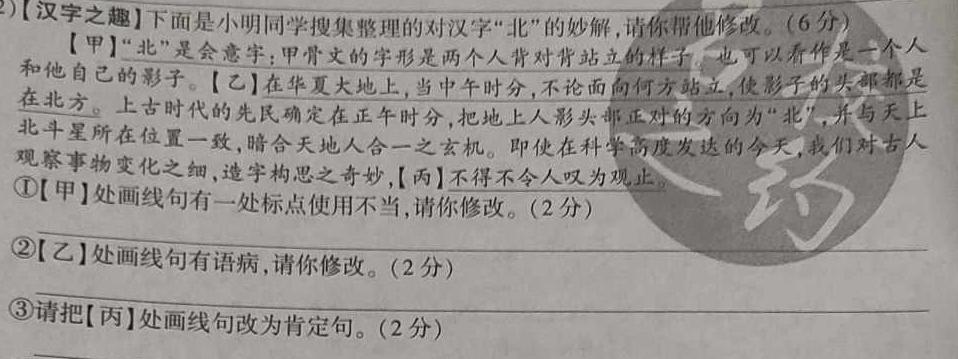 2)【汉字之趣】下面是小明同学搜集整理的对汉字“北”的妙解,请你帮他修改。(6分)
【甲】“北”是会意字;甲骨文的字形是两个人背对背站立的样子。也可以看作是一个人
和他自己的影子。【乙】在华夏大地上,当中午时分,不论面向何方站立,使影子的头部都是
在北方。上古时代的先民确定在正午时分,把地上人影头部正对的方向为“北”,并与天上
北斗星所在位置一致,暗合天地人合一之玄机。即使在科学高度发达的今天,我们对古人
观察事物变化之细,造字构思之奇妙,【丙】不得不令人叹为观止。
①【甲】处画线句有一处标点使用不当,请你修改。(2分)
②【乙】处画线句有语病,请你修改。(2分)
③请把【丙】处画线句改为肯定句。(2分)